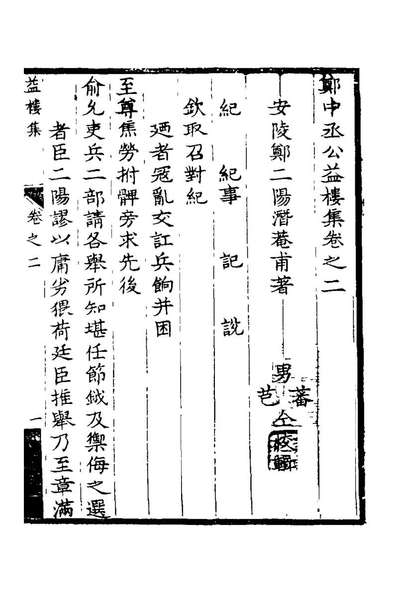 鄭中丞公益樓集卷之二
安陵鄭二陽潛菴甫著
男蕃芑仝校
紀 紀事 記 說
欽取召對紀
廼者寇亂交訌兵餉并困
至尊焦勞拊髀旁求先後
俞允吏兵二部請各舉所知堪任節鉞及禦侮之選
者臣二陽謬以庸劣猥荷廷臣推舉乃至章滿
益樓集 卷之二 一